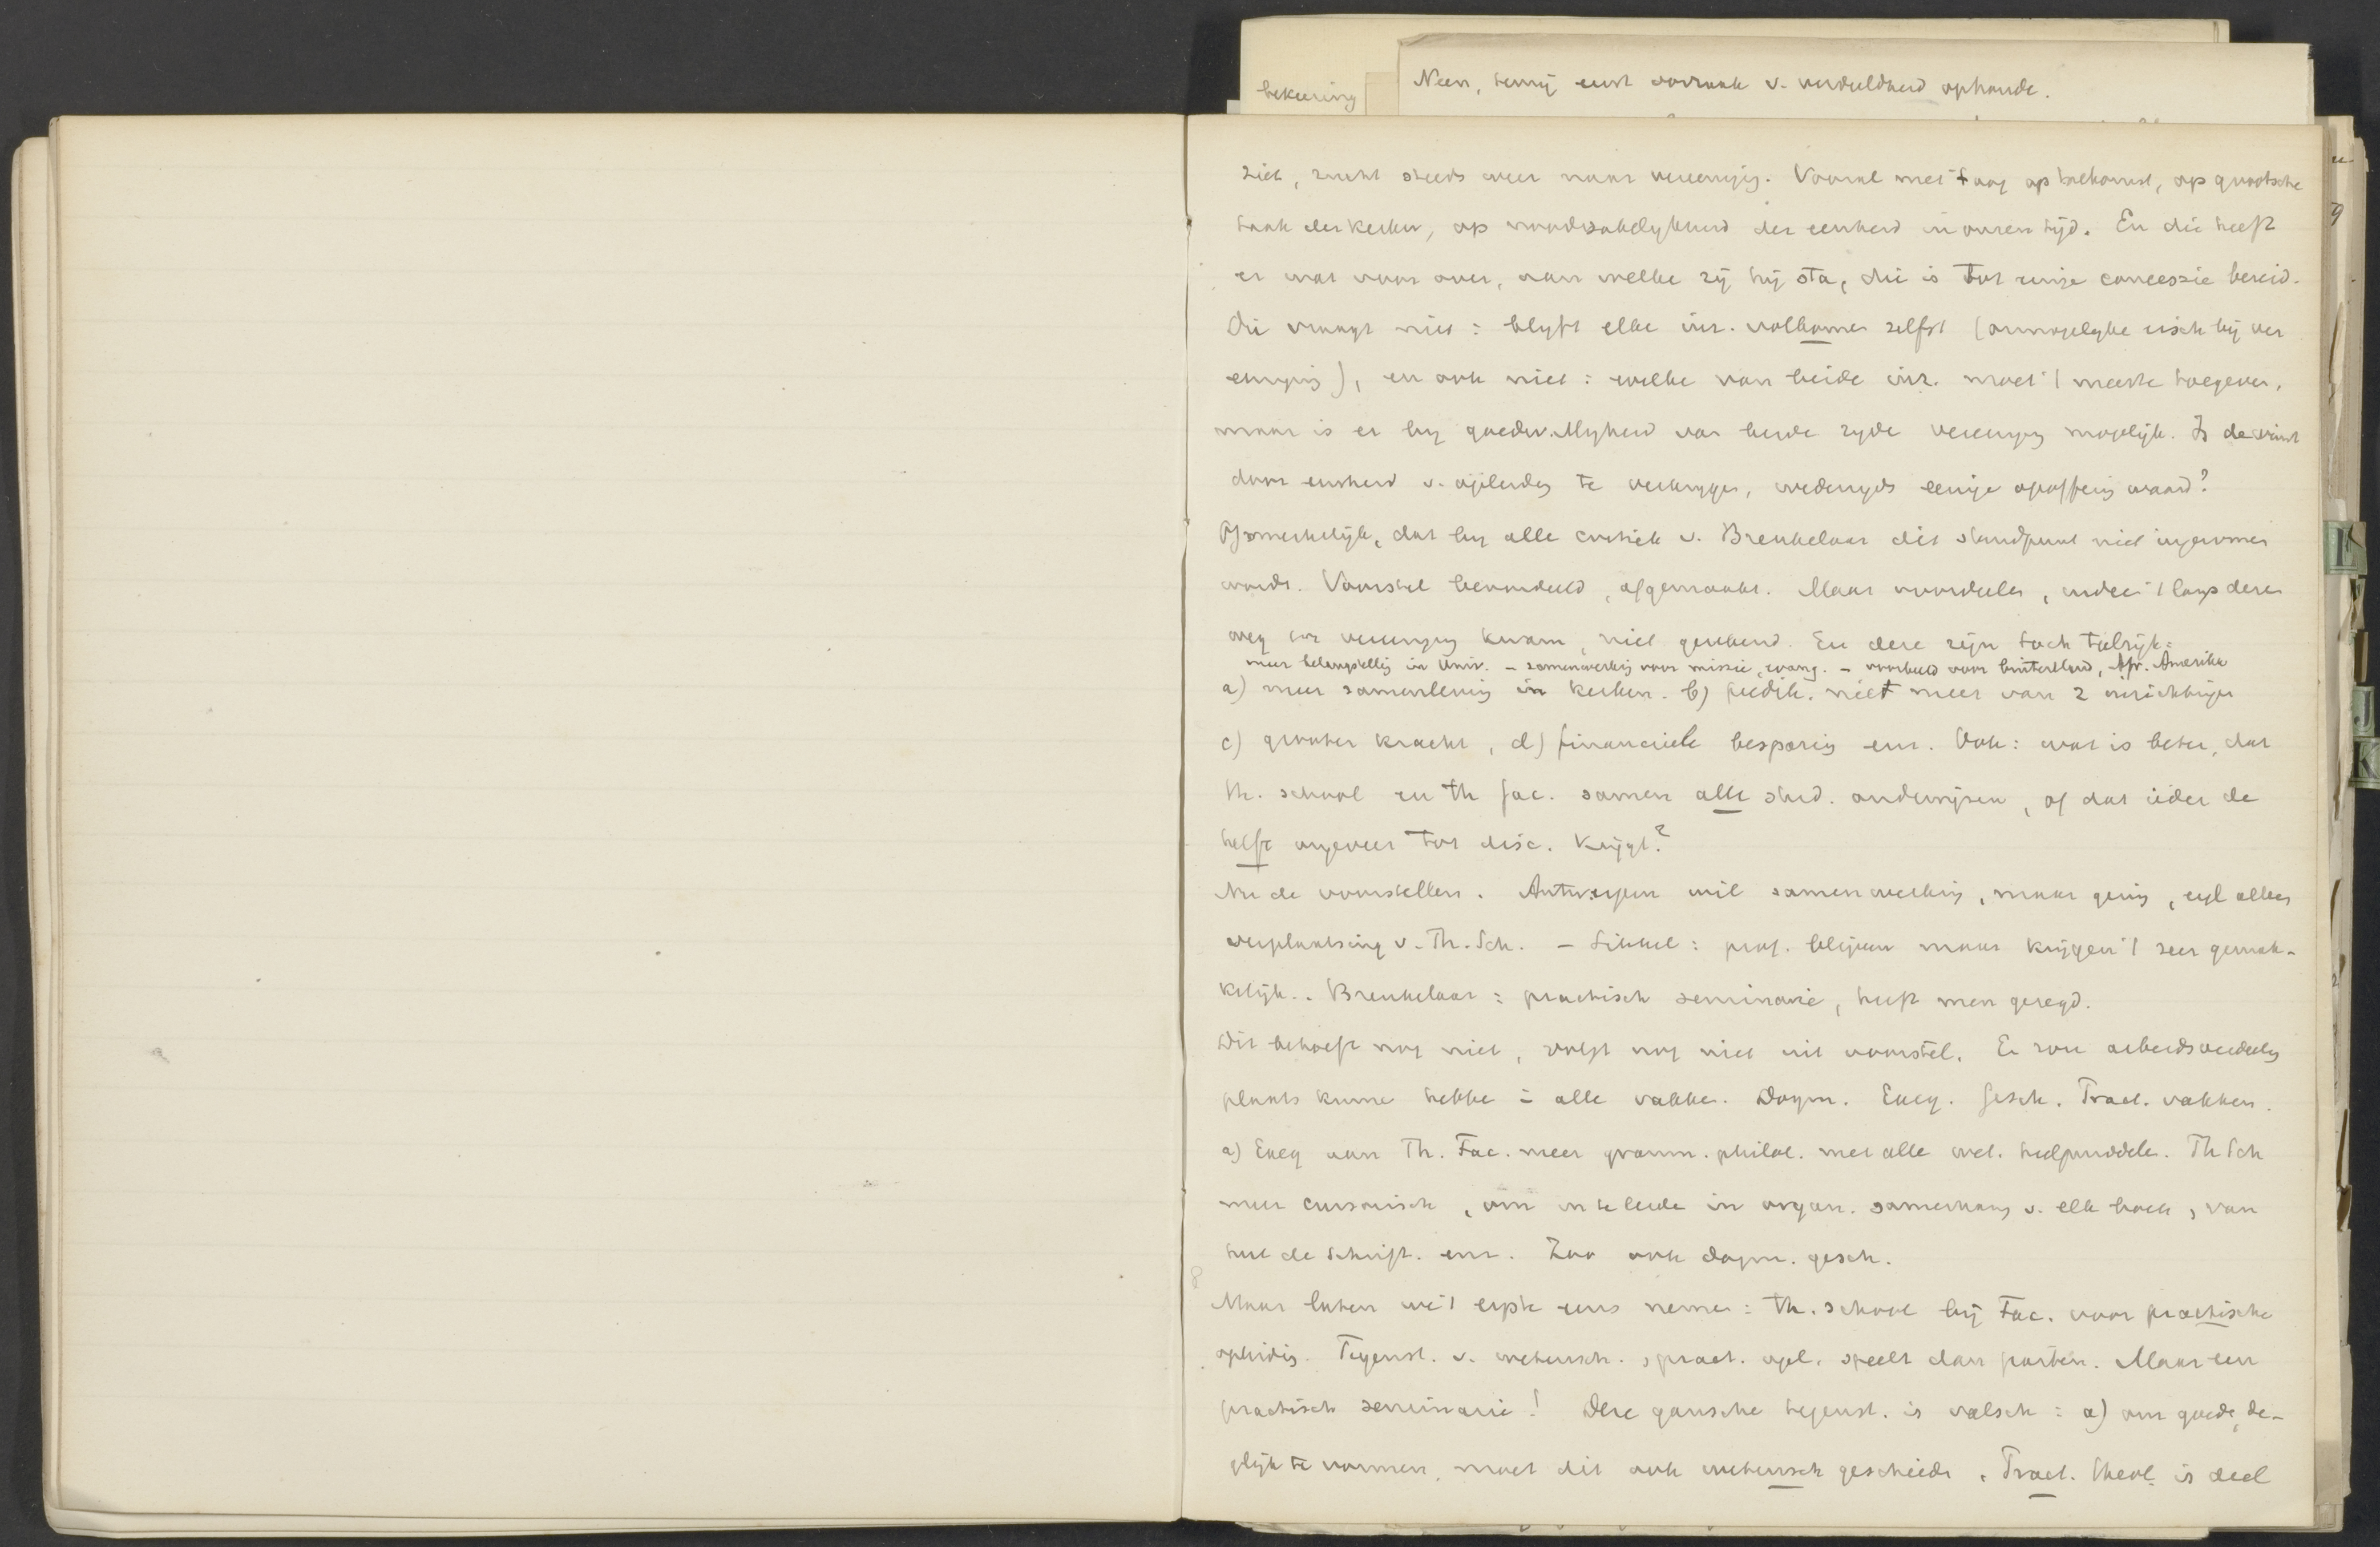 bekeering
Neen, hemij eerst oorzaak v. verdeeldheid ophoude.
ziet, zucht steeds weer naar vereenigg. Vooral met 't oog op toekomst, op grootsche
taak der kerken, op noodzakelykheid der eenheid in onzen tijd. En die heeft
er wat voor over, aan welke zij hij sta, die is tot eenige concessie bereid.
Die vraagt niet: blyft elke inr. volkomen zelfst (onmogelyke eisch bij ver
eenging), en ook niet: welke van beide inr. moet 't meeste toegeven,
maar is er bij goedw.llgheid van beide zyde vereenigg mogelijk. Is de winst
door eenheid v. opleidg te verkrygen, wederzyds eenige opoffering waard?
Opmerkelijk, dat by alle critiek v. Breukelaar dit standpunt niet ingenomen
wordt. Voorstel beoordeeld, afgemaakt. Maar voordeelen, indien 't langs dezen
weg tot vereenigg kwam, niet gerekend. En deze zijn toch talrijk:
meer belangstellg in Univ. – samenwerkg voor missie, evang. – voorbeeld voor buitenland, Afr. Amerika
a) meer samenlevig in kerken. b) predik. niet meer van 2 inrichtingen
c) grooter kracht, d) financieele besparig enz. Ook: wat is beter, dat
th. school en th fac. samen alle stud. onderwijzen, of dat ieder de
helft ongeveer tot disc. krijgt?
Nu de voorstellen. Antw.rpen wil samenwerking, maar geeft, eigl alleen
verplaatsing v. Th. Sch. – Sikkel: prof. blijven maar krijgen 't zeer gemak-
kelijk. . Breukelaar: practisch seminarie, heeft men gezegd.
Dit behoeft nog niet, volgt nog niet uit voorstel. Er zou arbeidsverdeelg
plaats kunne hebbe in alle vakke. Dogm. Exeg. Gesch. Pract. vakken.
a) Exeg aan Th. Fac. meer gramm. philol. met alle wet. hulpmiddele. Th Sch
meer cursorisch, om in te leide in organ. samenhang v. elk boek, van
heel de Schrift. enz. Zoo ook dogm. gesch.
Maar laten we 't ergste eens nemen: th. school bij Fac. voor practische
opleidig. Tegenst. v. wetensch. , pract. opl. speelt dan parten. Maar een
practisch seminarie! Deze gansche tegenst. is valsch: a) om goede, de-
gelijk te vormen, moet dit ook wetensch geschiede. Pract. theol. is deel